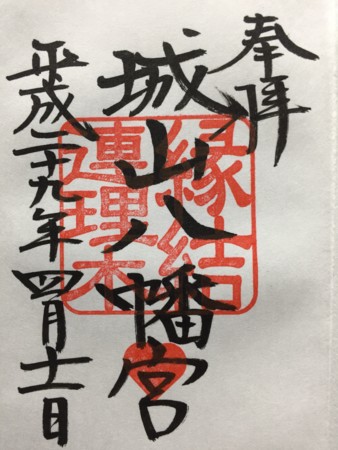 奉拝
城山八幡宮
平成二十九年四月十一日
縁結
連理木